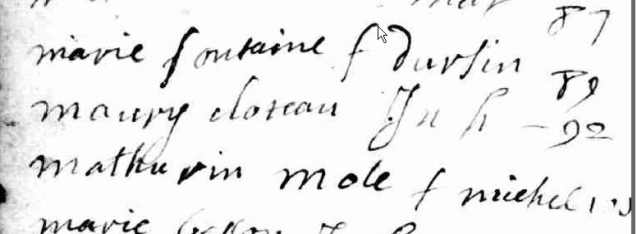 87
marie fontaine f dursin 89
maury cloteau Jn h - 92
mathurin mole f michel
marie